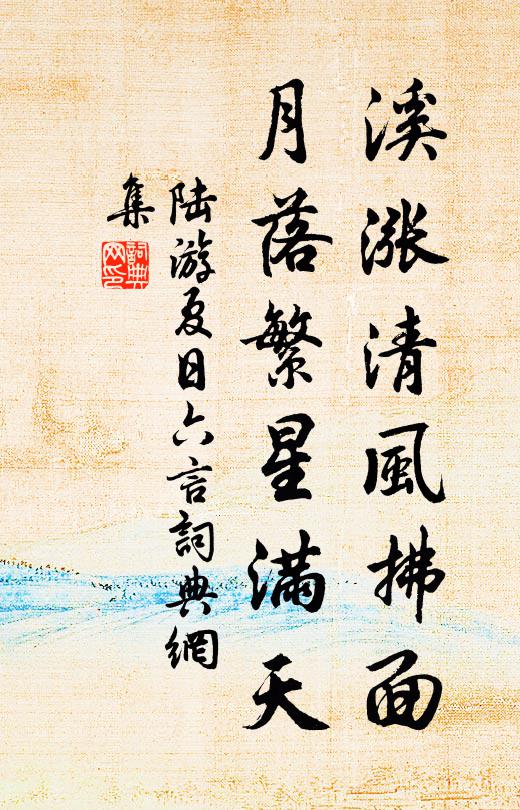 溪漲清風拂面
月落繁星满天
陆游夏日六言詞典網
集
詞典
网印